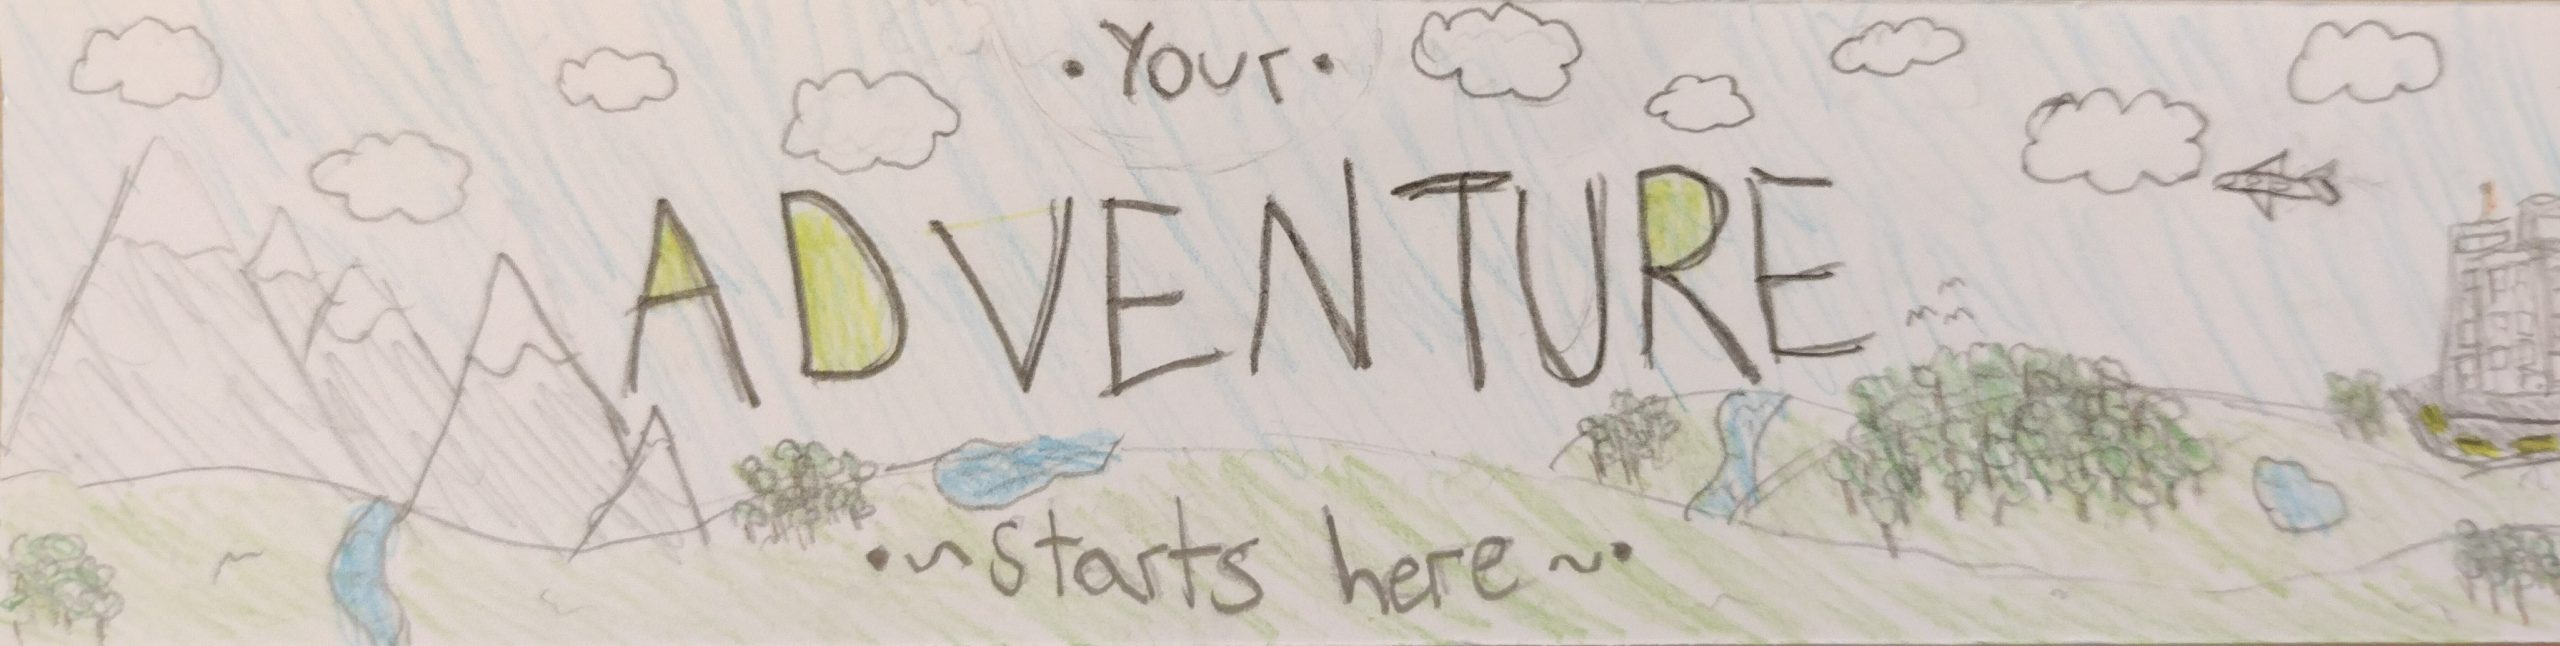 • Your •
ADVENTURE
•~ starts here ~•